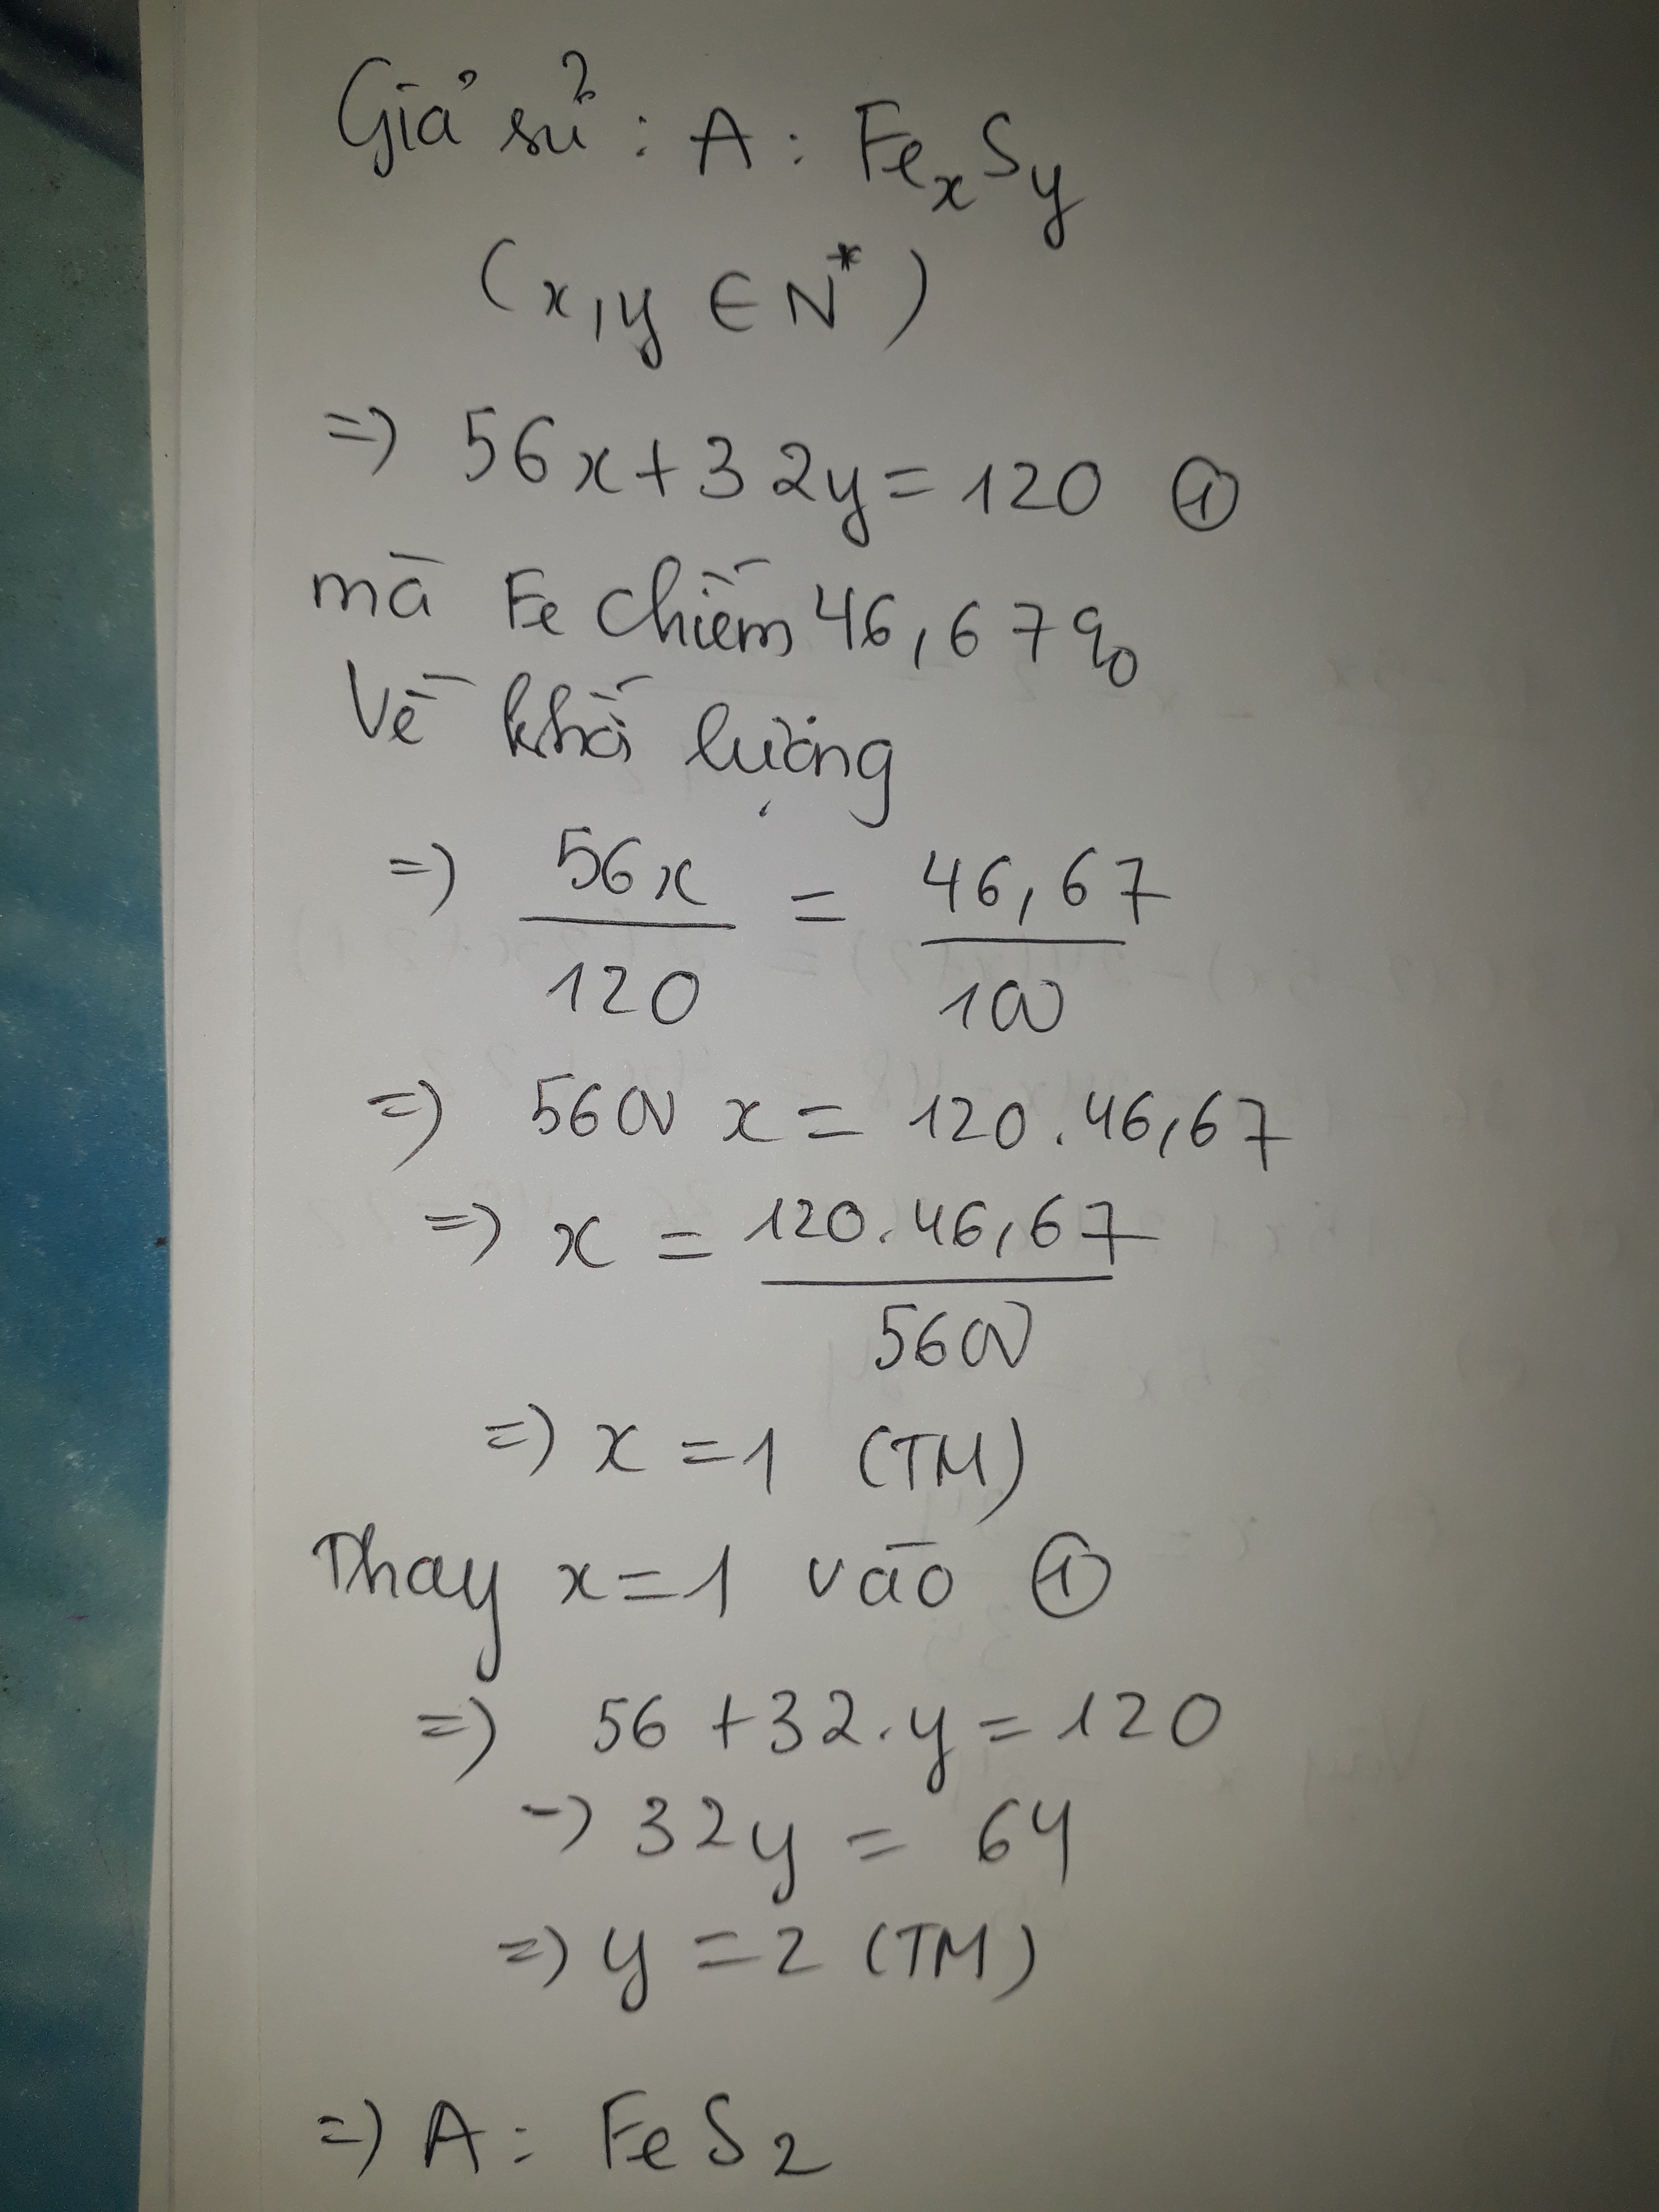 Giả sử : A : FexSy
(x,y ∈ N*)
=> 56x + 32y = 120 ①
mà Fe chiếm 46,67%
Về khối lượng
=> 56x / 120 = 46,67 / 100
=> 5600 x = 120 . 46,67
=> x = 120.46,67 / 5600
=> x = 1 (TM)
Thay x = 1 vào ①
=> 56 + 32.y = 120
-> 32y = 64
=> y = 2 (TM)
=> A : FeS2